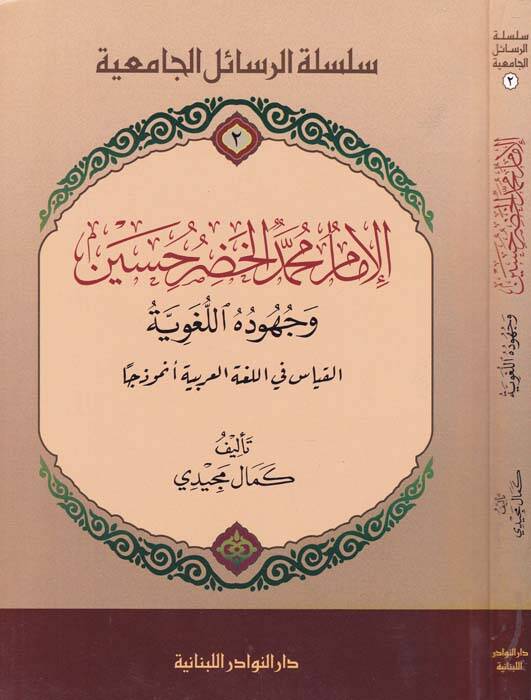 سلسلة الرسائل الجامعية
٢
الإمام محمد الخضر حسين
وجهوده اللغوية
القياس في اللغة العربية أنموذجًا
تأليف
كمال مجيدي
دار النوادر اللبنانية
سلسلة
الرسائل
الجامعية
٢
الإمام محمد الخضر حسين
وجهوده اللغوية
تأليف
كمال مجيدي
دار النوادر
اللبنانية